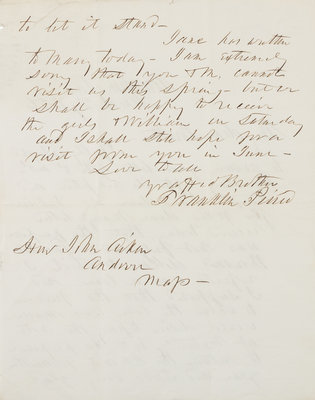 to let it stand—
Jane has written
to Mary today— I am extremely
sorry that you & M. cannot
visit us this spring— but we
shall be happy to receive
the girls & William on Saturday
and I shall still hope for a
visit from you in June—
Love to all
Yr affed Brother
Franklin Pierce
Hon John Aiken
Andover
Mass—